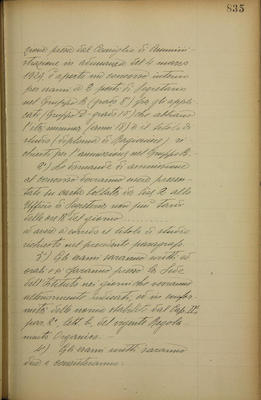 835
zione presa dal Consiglio di Ammini-
strazione in adunanza del 4 marzo
1924, è aperto un concorso interno
per esami a 2 posti di Segretario
nel Gruppo B (grado 8°) fra gli appli-
cati (Gruppo 2° grado 15°) che abbiano
l'età minima (anni 18) e il titolo di
studio (diploma di Ragioniere) ri-
chiesti per l'ammissione nel gruppo B.
2°) Le domande di ammissione
al concorso dovranno essere presen-
tate su carta bollata da Lire 2 allo
Ufficio di Segreteria non più tardi
delle ore 18 del giorno
ed avere a corredo il titolo di studio
richiesto nel precedente paragrafo.
3°) Gli esami saranno scritti ed
orali e si faranno presso la Sede
dell'Istituto nei giorni che verranno
ulteriormente indicati, ed in confor-
mità delle norme stabilite dal Cap. II°,
par. 2°, lett. b. del vigente Regola-
mento Organico.
4°) Gli esami scritti saranno
due e consisteranno: